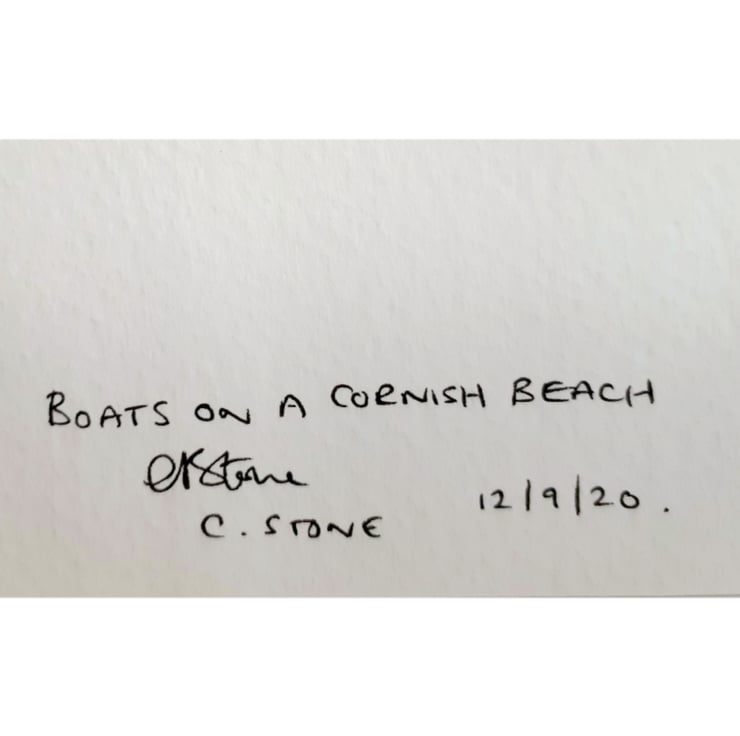 BOATS ON A CORNISH BEACH
CKStone
C. STONE 12/9/20.